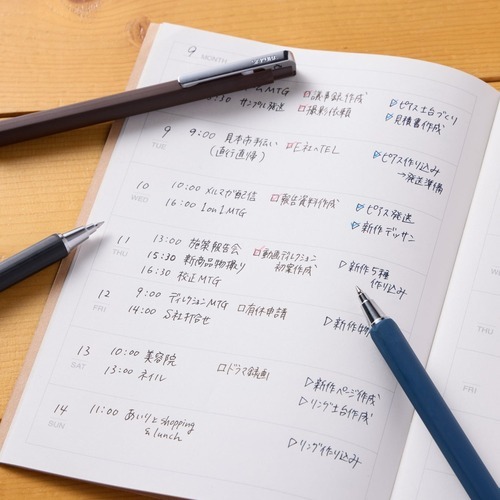 9 MONTH
MTG □議事録作成 ▷ピアス土台づくり
:30 サンプル発送 □撮影依頼 ▷見積書作成
9 TUE 9:00 見本市手伝い □E社へTEL ▷ピアス作り込み
(直行直帰) →発送準備
10 WED 10:00 メルマガ配信 □報告資料作成 ▷ピアス発送
16:00 1on1 MTG ▷新作デッサン
11 THU 13:00 施策報告会 □動画ディレクション ▷新作5種
15:30 新商品物撮り 初案作成 作り込み
16:30 校正MTG
12 FRI 9:00 ディレクションMTG □有休申請 ▷新作物
14:00 S社打合せ
13 SAT 10:00 美容院 □ドラマ録画 ▷新作ページ作成
13:00 ネイル ▷リング土台作成
14 SUN 11:00 あいりとshopping ▷リング作り込み
& lunch
THU
FRI